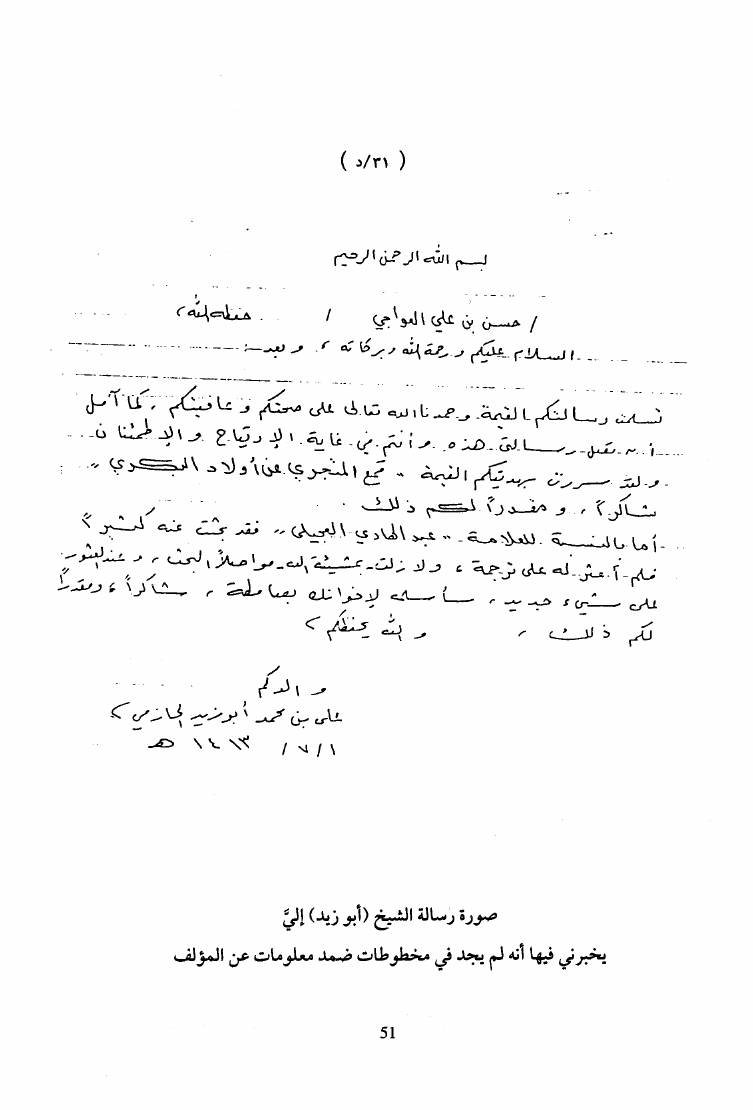 ( ٣١/د )
بسم الله الرحمن الرحيم
/ حسن بن علي العواجي / حفظه الله،
السلام عليكم ورحمة الله وبركاته، وبعد:
تسلمت رسالتكم القيمة وحمدنا الله تعالى على صحتكم وعافيتكم، كما آمل
أن تصل رسالتي هذه وأنتم في غاية الارتياح والاطمئنان
ولقد سررت بهديتكم القيمة " مع المتجري عن أولاد البكري "
شاكراً، ومقدراً لكم ذلك.
أما بالنسبة للعلامة " عبد الهادي العجيلي " فقد بحثت عنه كثيراً
فلم أعثر له على ترجمة، ولا زلت بمشيئة الله مواصلاً البحث، وعند العثور
على شيء جديد، سأرسله لإخوانك شاكراً، ومقدراً
لكم ذلك، والله يحفظكم،
والدكم
علي بن محمد أبو زيد الحازمي
١/٧/ ١٤١٣ هـ
صورة رسالة الشيخ (أبو زيد) إليَّ
يخبرني فيها أنه لم يجد في مخطوطات ضمد معلومات عن المؤلف
51